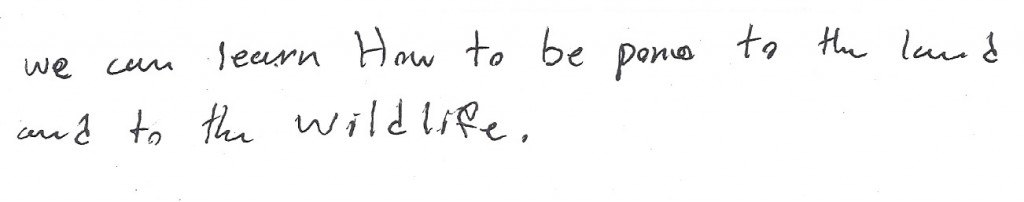 we can learn How to be pono to the land
and to the wildlife.